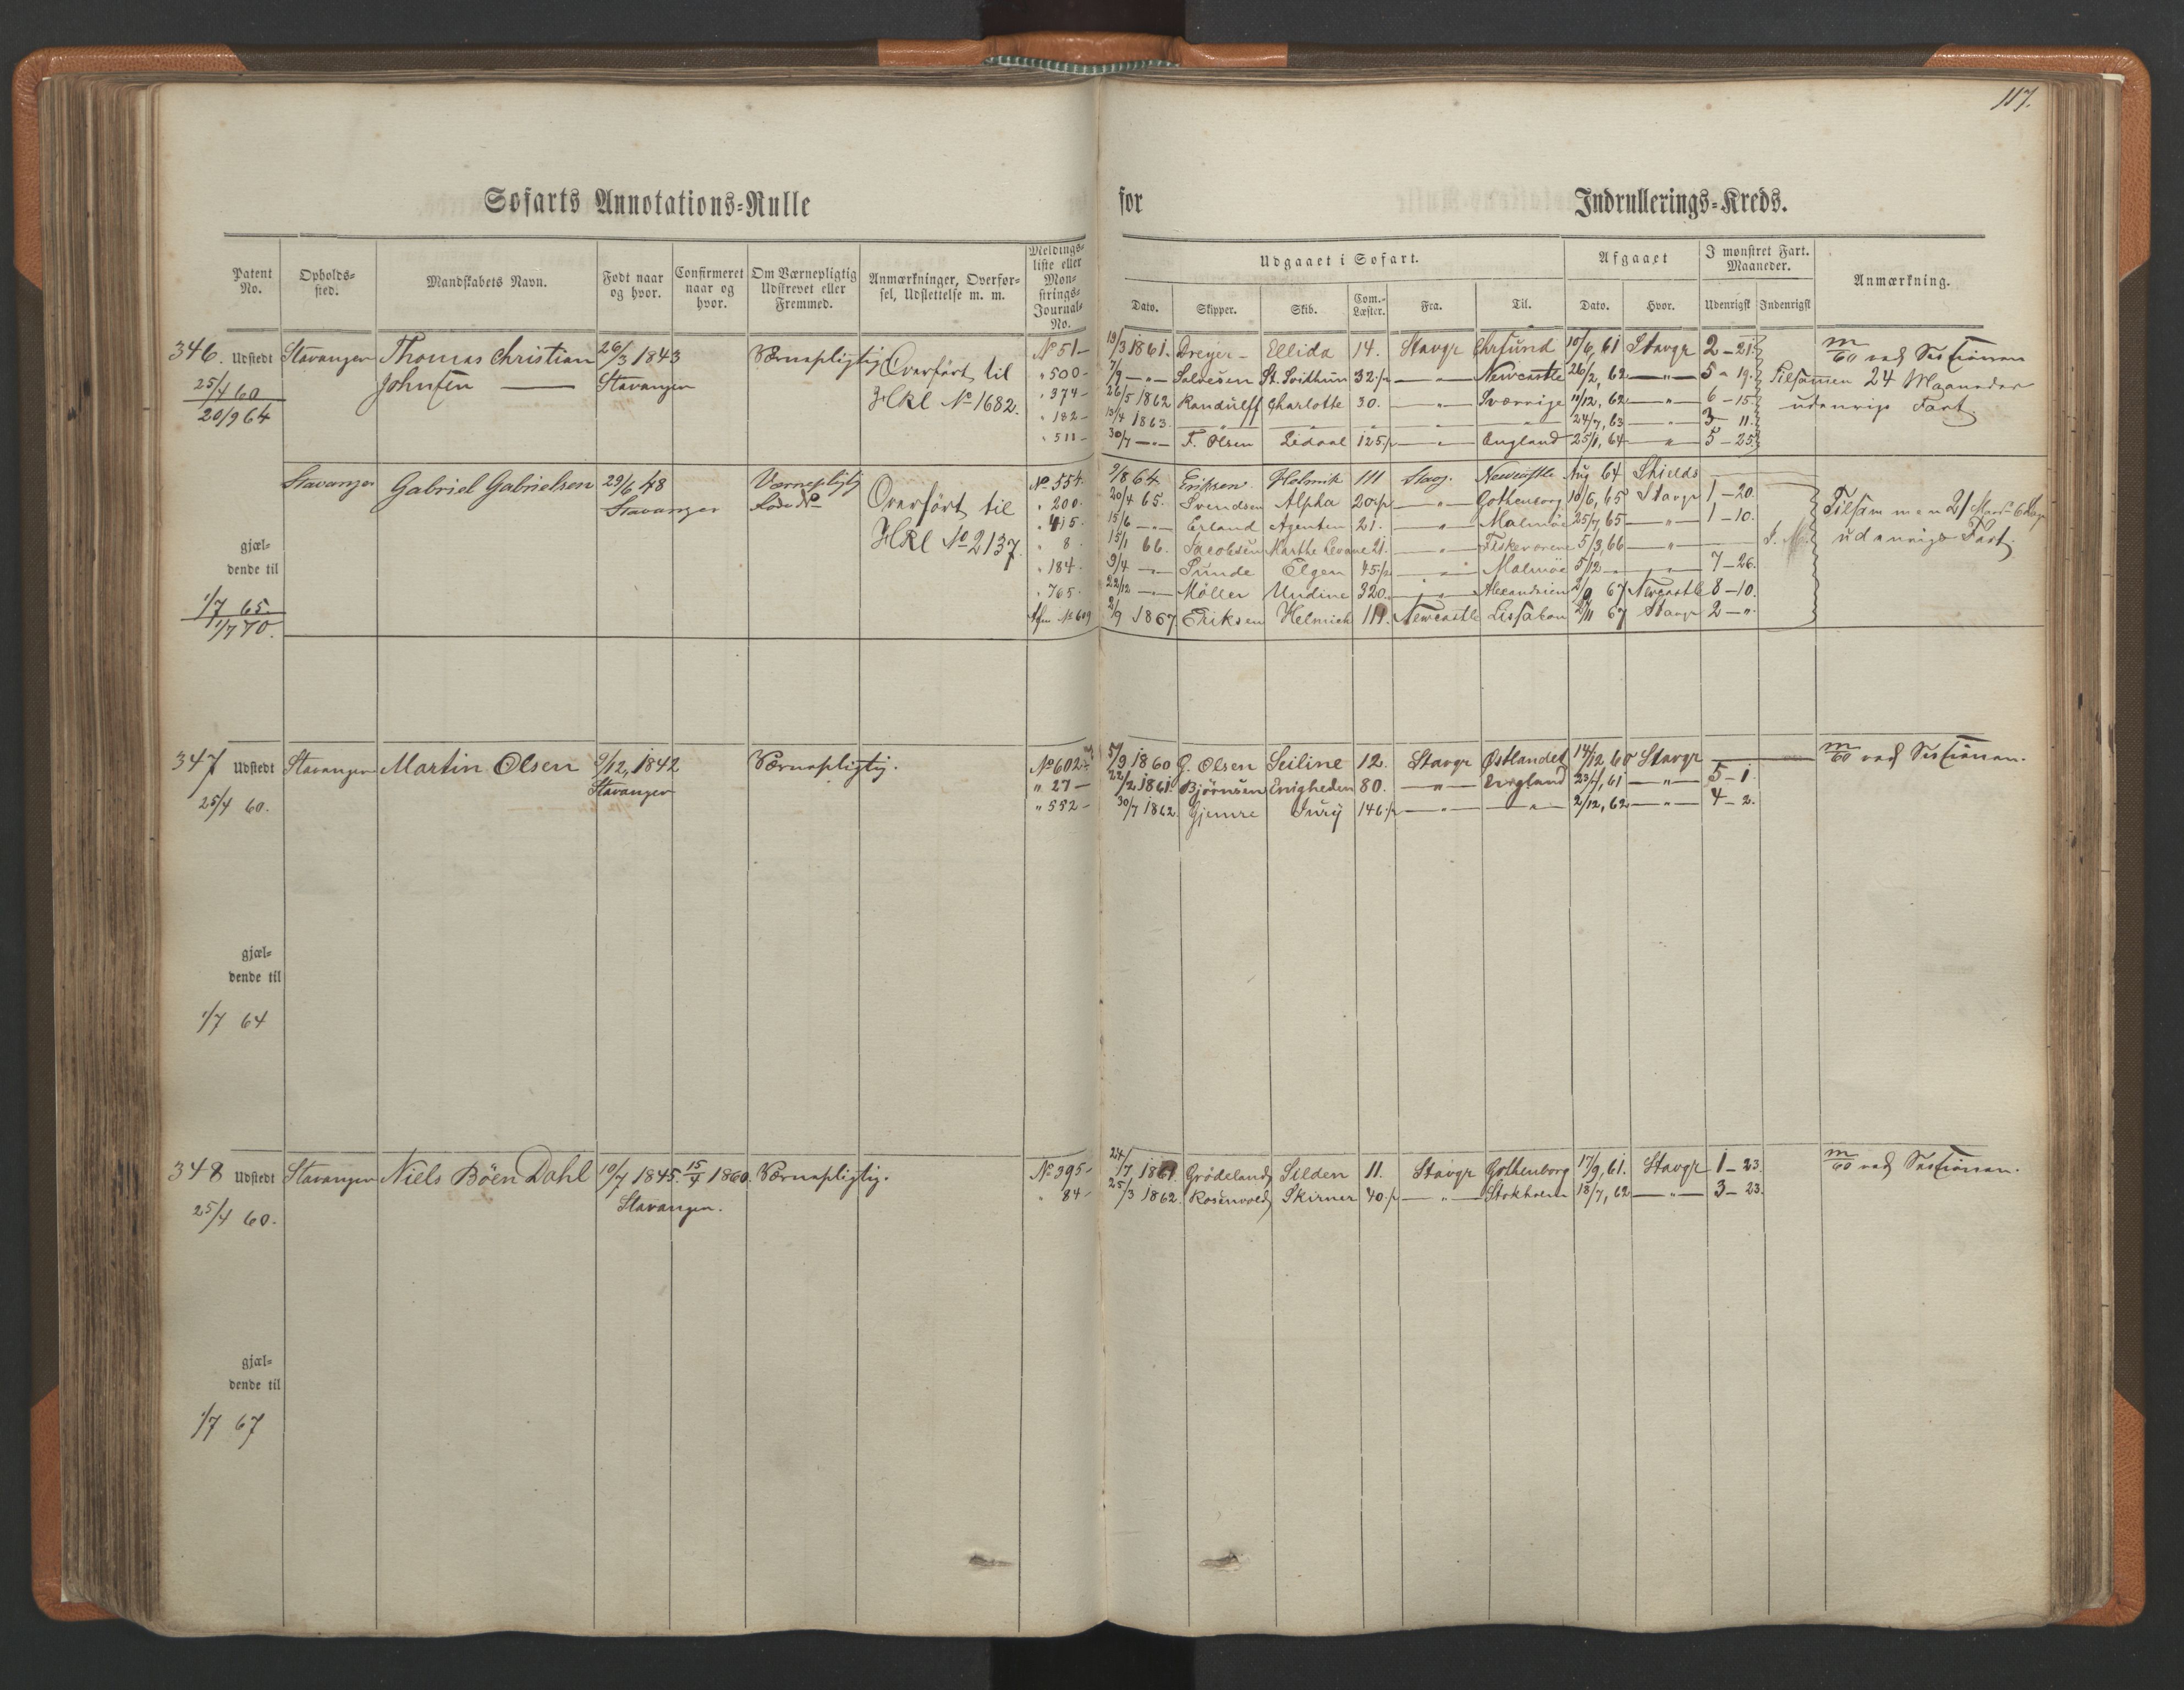 117.
Søfarts Annotations-Rulle for Indrullerings-Kreds.
Patent No.
Opholds-sted.
Mandskabets Navn.
Født naar og hvor.
Confirmeret naar og hvor.
Om Værnepligtig Udskrevet eller Fremmed.
Anmærkninger, Overførsel, Udslettelse m. m.
Meldingsliste eller Mønstrings-Journal-No.
Udgaaet i Søfart.
Dato. Skipper. Skib. Com.-Læster. Fra. Til.
Afgaaet
Dato. Hvor.
I mønstret Fart. Maaneder.
Udenrigsk Indenrigsk
Anmærkning.
346. Udstedt Stavanger Thomas Christian 26/3 1843 Værnepligtig Overført til No 51 19/3 1861. Dreyer Ellida 14. Stavgr Ehrsund 10/6, 61 Stavgr 2-21 m/60 ved Sessionen
25/4 60 Johnsen Stavanger HRl No 1682. " 500 7/9 -"- Salvesen St. Svidhun 32 -"- Newcastle 26/2, 62 -"- 5 " 19. Tilsammen 24 Maaneder
20/9 64 " 374 26/5 1862 Randulff Charlotte 30. -"- Sverrige 11/12, 62 -"- 6-15 udenrigs Fart
" 182 13/4 1863. -"- -"- " -"- -"- 24/7, 63 -"- 3 11.
" 511 30/7 -"- T. Olsen Ledaal 125 -"- England 25/1, 64 -"- 5-25
Stavanger Gabriel Gabrielsen 29/6 48 Værnepligtig Overført til No 554. 9/8 64 Eriksen Helmik 111 Stavg. Newcastle Aug 64 Shields
Stavanger HRl No 2137. " 200 20/4 65. Svendsen Alpha 20 -"- Gothenborg 10/6, 65 Stavgr 1-20. Tilsammen 21
" 415 15/6 -"- Erland Agenten 21. -"- Malmøe 25/7, 65 -"- 1-10. udenrigs Fart.
gjæl-
dende til
" 8 15/1 66. Jacobsen Marthe 21. -"- Fiskeværene 5/3, 66 -"-
" 184. 9/4 -"- Sunde Elgen 45 -"- Malmøe 5/12 -"- 7-26.
1/7 65. " 765. 22/12 -"- Møller Undine 320. -"- Alexandrien 67 Newcastle 8-10.
1/7 70. No 609 2/9 1867 Eriksen Helmich 111. Newcastle Lissabon 2/11 67 Stavgr 2-".
347 Udstedt Stavanger Martin Olsen 9/12, 1842 Værnepligtig. No 602 5/9 1860 O. Olsen Seiline 12. Stavgr Østlandet 14/12, 60 Stavgr m/60 ved Sessionen.
25/4 60. Stavanger " 27 22/2 1861 Bjørnsen Enigheden 80. -"- England 23/7, 61 -"- 5-1.
" 552 30/7 1862. Gjemre Jury 146 -"- -"- 2/12, 62 -"- 4-2.
gjæl-
dende til
1/7 64
348 Udstedt Stavanger Niels Böen Dahl 10/7 1845. 15/4 1860. Værnepligtig. No 395 24/7 1861. Grödeland Silden 11. Stavgr Gothenborg 17/9, 61. Stavgr 1-23. m/60 ved Sessionen.
25/4 60. Stavanger. " 84 25/3 1862. Rosenvold Skirner 40 -"- Stokholm 18/7, 62 -"- 3-23.
gjæl-
dende til
1/7 67